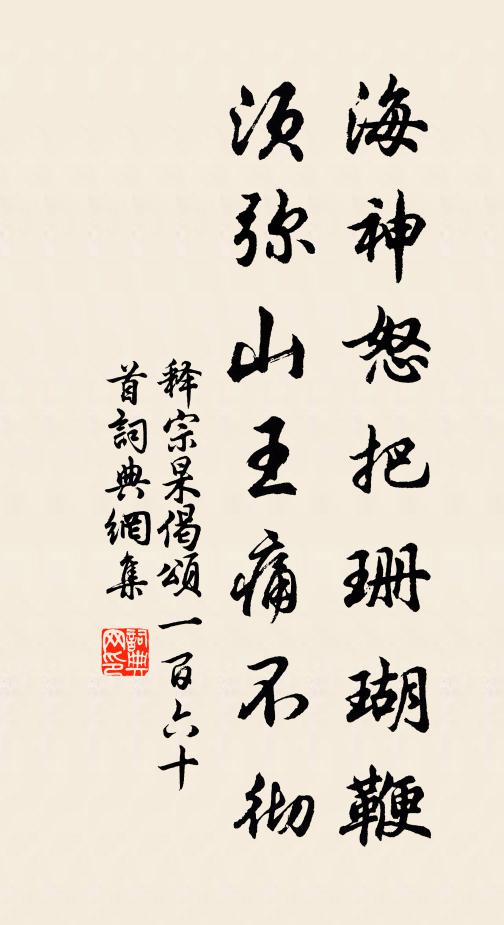 海神怒把珊瑚鞭
须弥山王痛不彻
释宗杲偈頌一百六十
首詞典網集
詞典网印